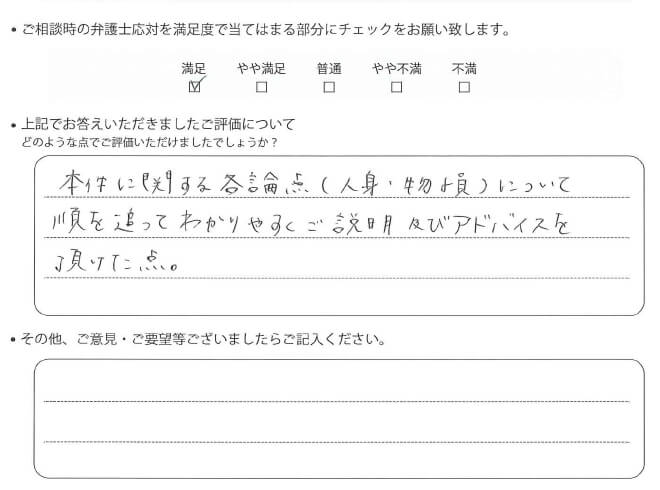 • ご相談時の弁護士応対を満足度で当てはまる部分にチェックをお願い致します。
満足 やや満足 普通 やや不満 不満
☑ □ □ □ □
• 上記でお答えいただきましたご評価について
どのような点でご評価いただけましたでしょうか？
本件に関する各論点(人身・物損)について
順を追ってわかりやすくご説明及びアドバイスを
頂けた点。
• その他、ご意見・ご要望等ございましたらご記入ください。